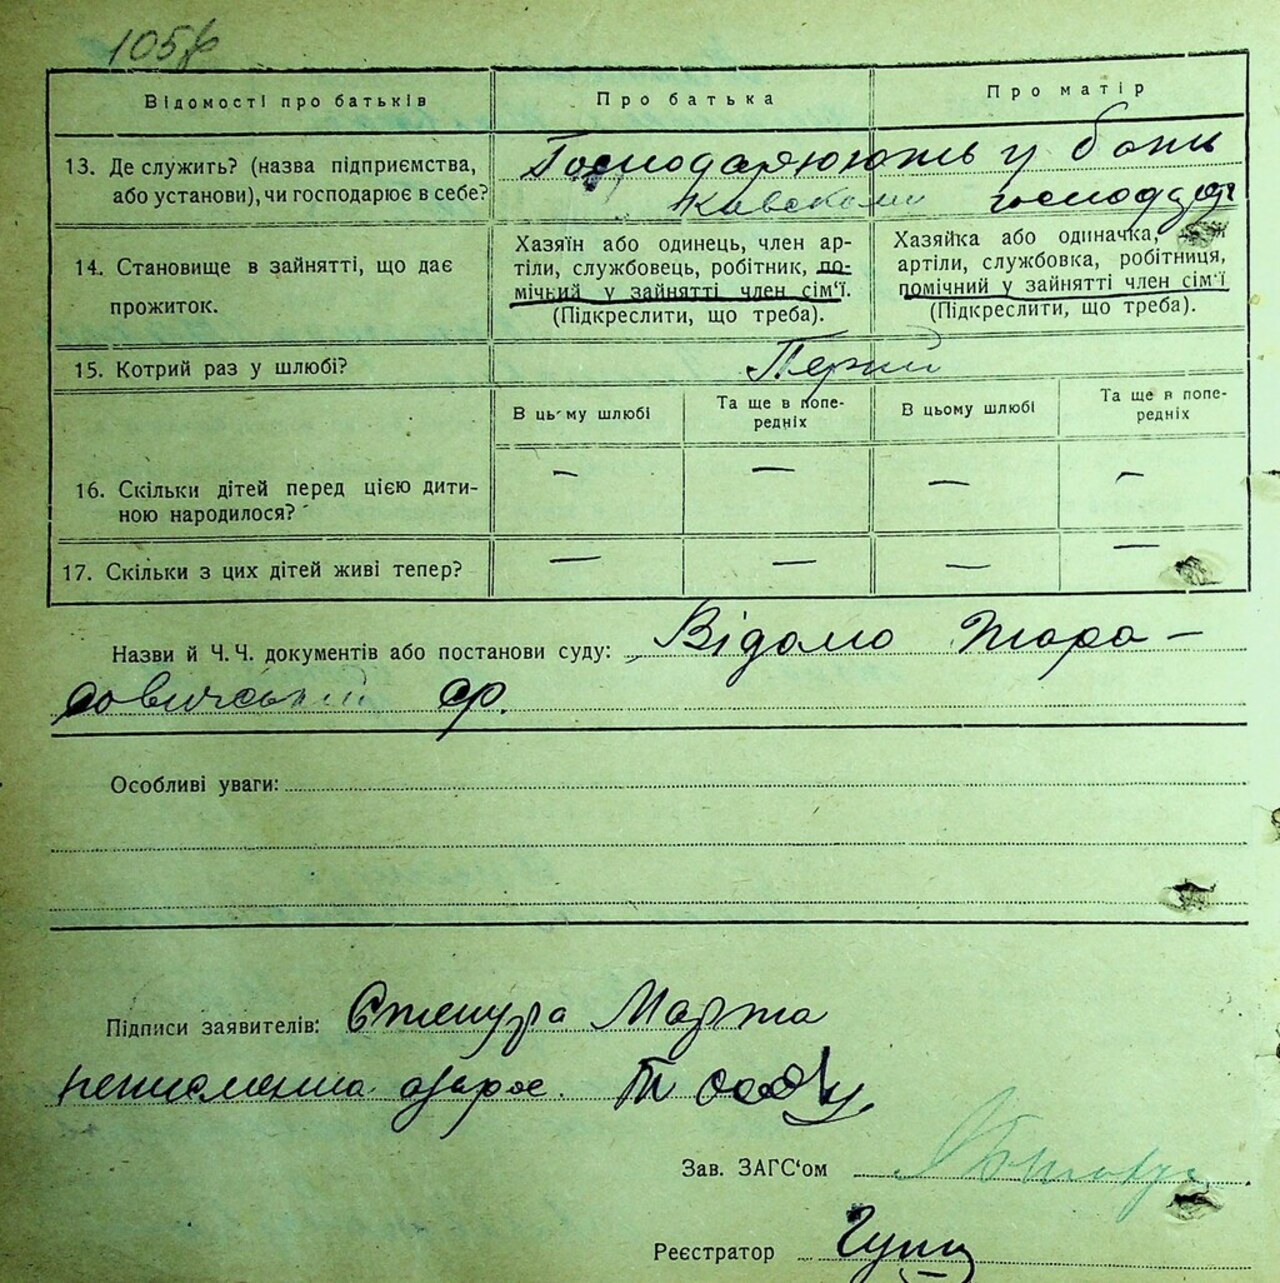 105
Відомості про батьків
Про батька
Про матір
13. Де служить? (назва підприємства,
або установи), чи господарює в себе?
Господарюють у бать
ковском господар
14. Становище в зайнятті, що дає
прожиток.
Хазяїн або одинець, член ар-
тіли, службовець, робітник, по-
мічний у зайнятті член сім'ї.
(Підкреслити, що треба).
Хазяйка або одиначка,
артіли, службовка, робітниця,
помічний у зайнятті член сім'ї
(Підкреслити, що треба).
15. Котрий раз у шлюбі?
Перший
В цьому шлюбі
Та ще в попе-
редніх
В цьому шлюбі
Та ще в попе-
редніх
16. Скільки дітей перед цією дити-
ною народилося?
— — — —
17. Скільки з цих дітей живі тепер?
— — — —
Назви й Ч.Ч. документів або постанови суду: Відомо Тара-
совичський ср.
Особливі уваги:
Підписи заявителів: Марта
неписьменна
Зав. ЗАГС'ом
Реєстратор